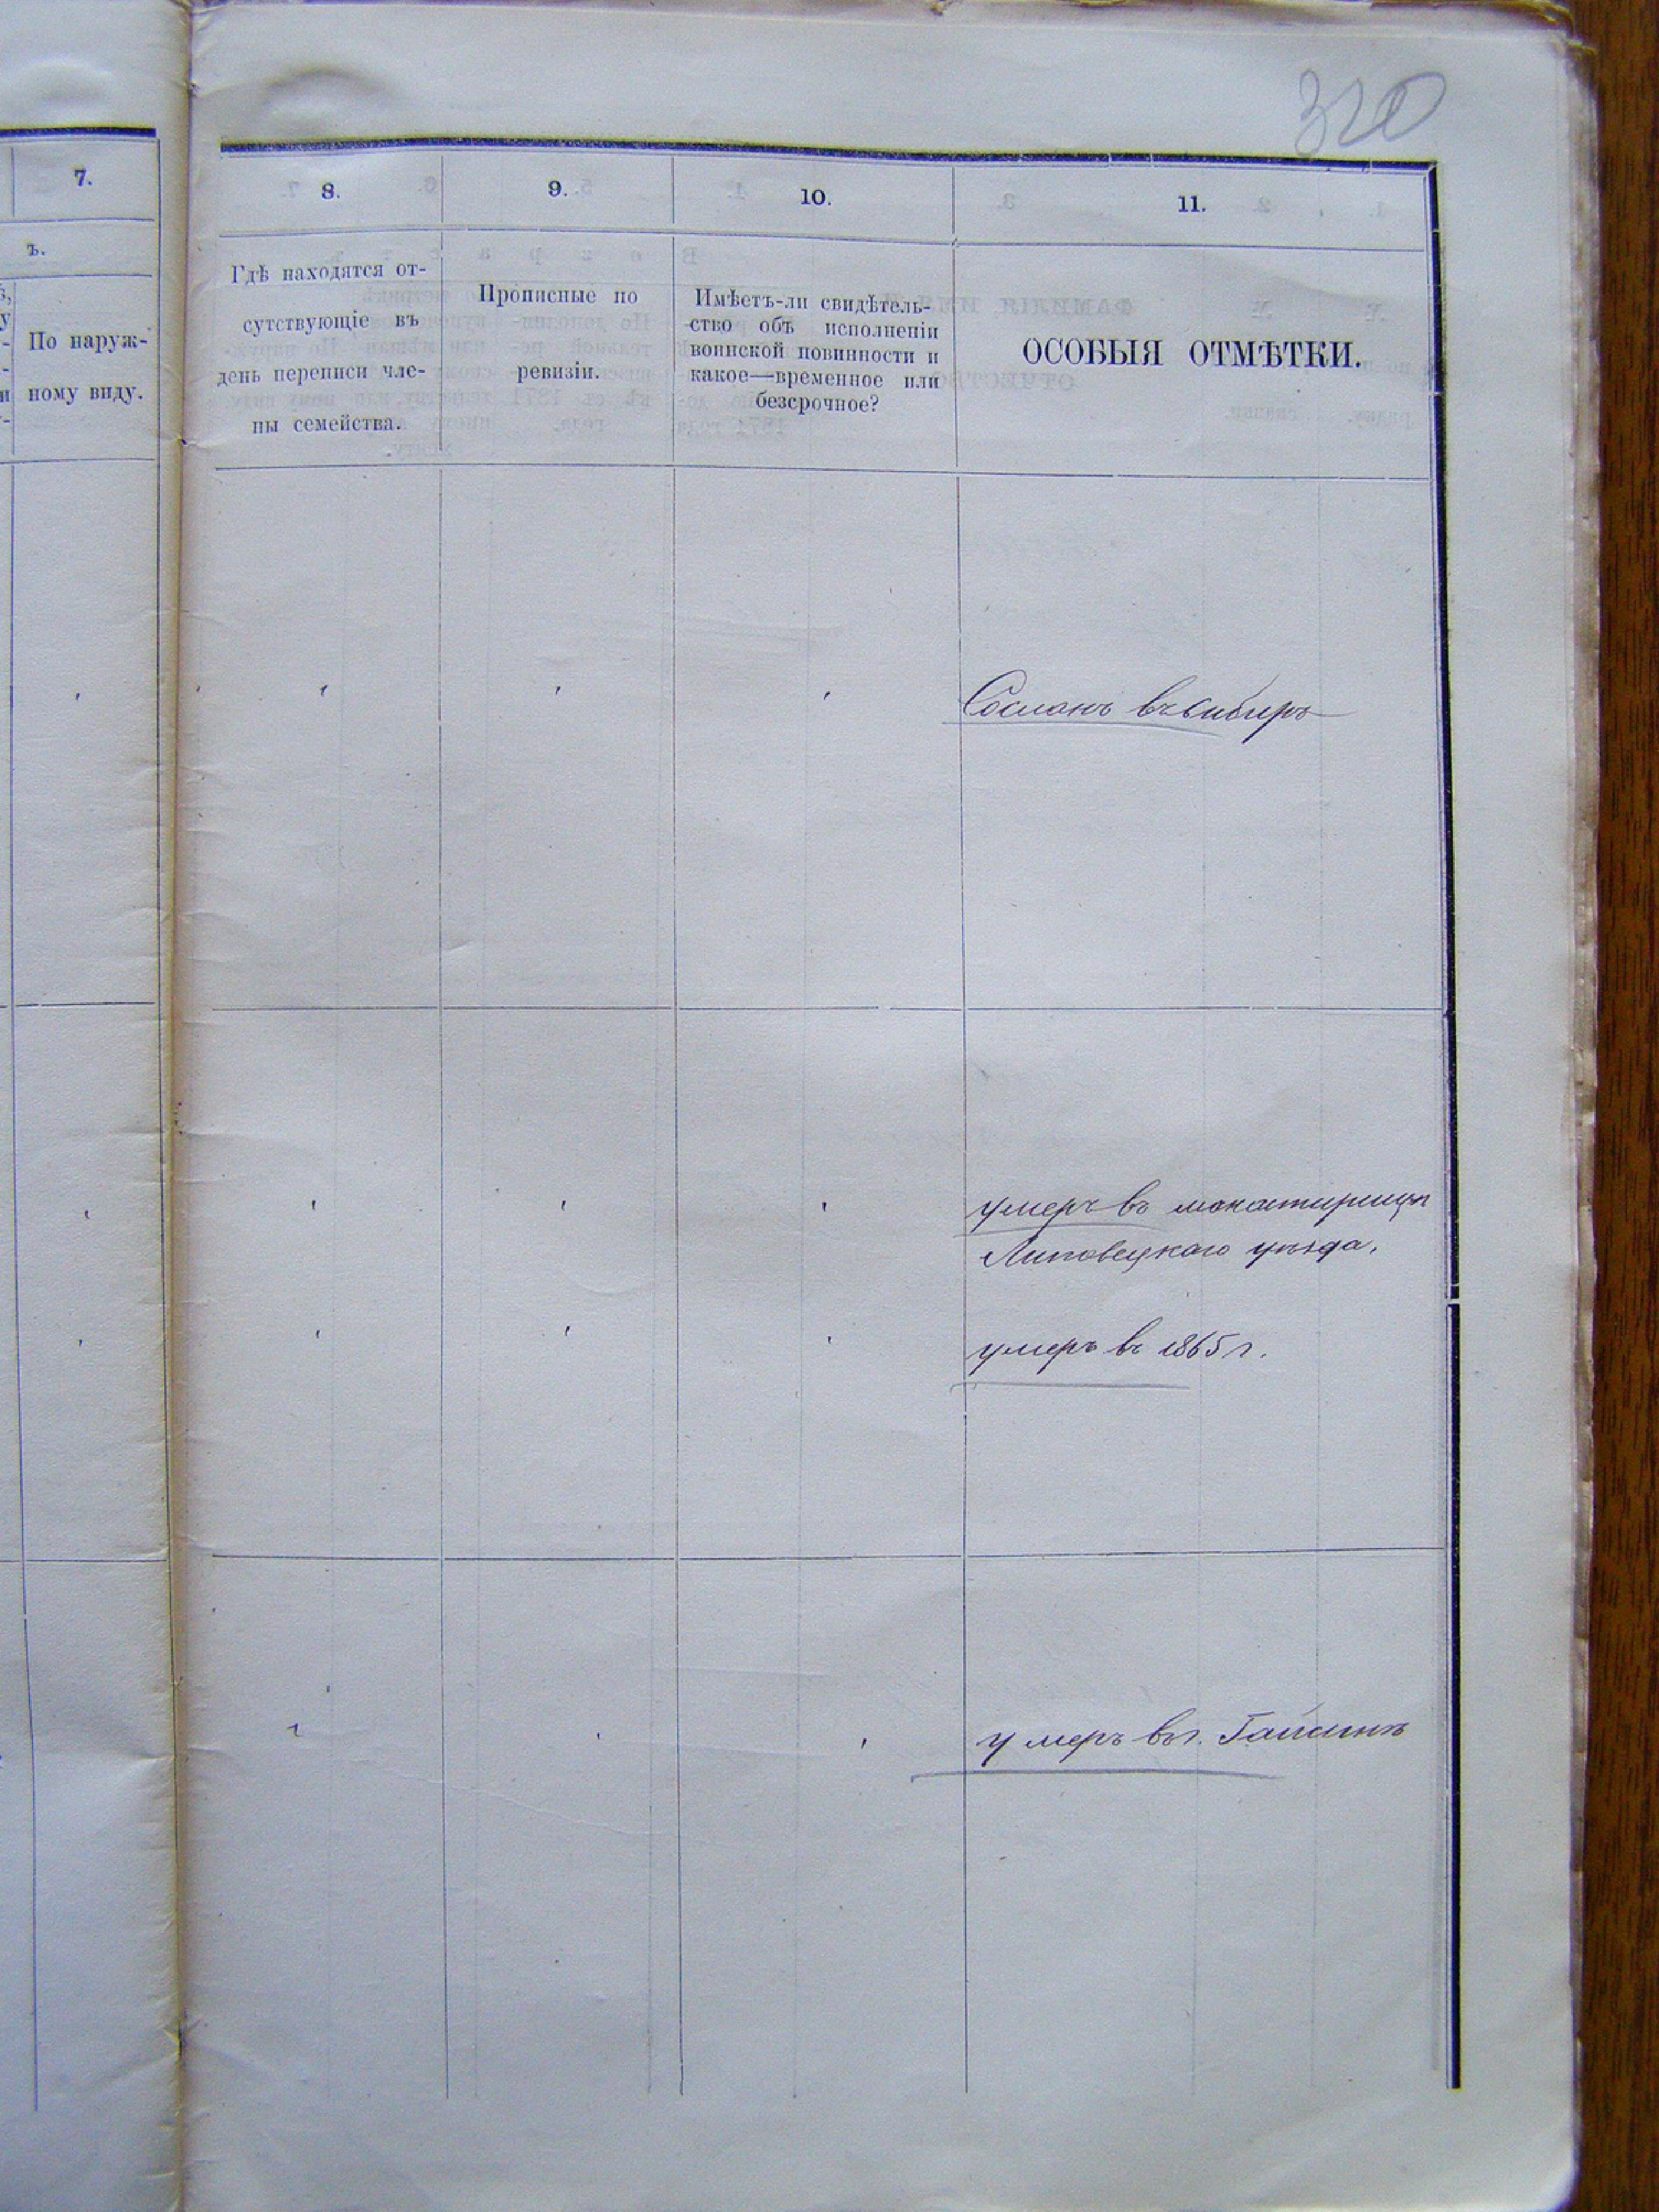 320
7.
8.
9.
10.
11.
ъ.
По наруж-
ному виду.
Гдѣ находятся от-
сутствующіе въ
день переписи чле-
ны семейства.
Прописные по
ревизіи.
Имѣетъ-ли свидѣтель-
ство объ исполненіи
воинской повинности и
какое—временное или
безсрочное?
ОСОБЫЯ ОТМѢТКИ.
Сосланъ въ сибирь
умеръ въ монастирищѣ
Липовецкаго уѣзда.
умеръ въ 1865 г.
умеръ въ г. Гайсинѣ